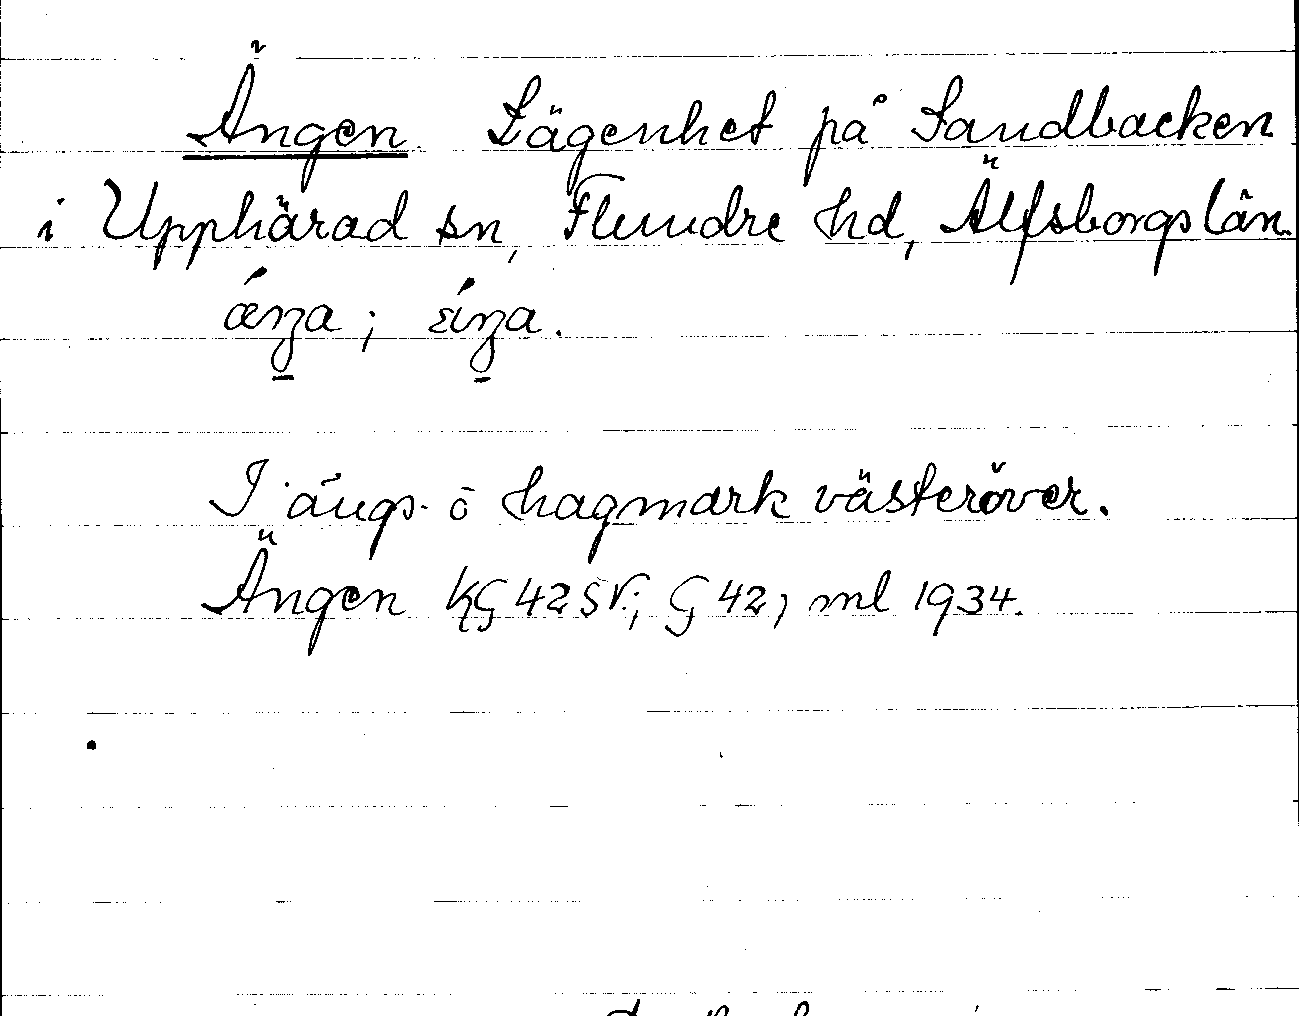 Ängen Lägenhet på Sandbacken
i Upphärad sn, Flundre hd, Älfsborgs län.
I ängs- o hagmark västeröver.
Ängen KG 42 SV; G 42, ml 1934.